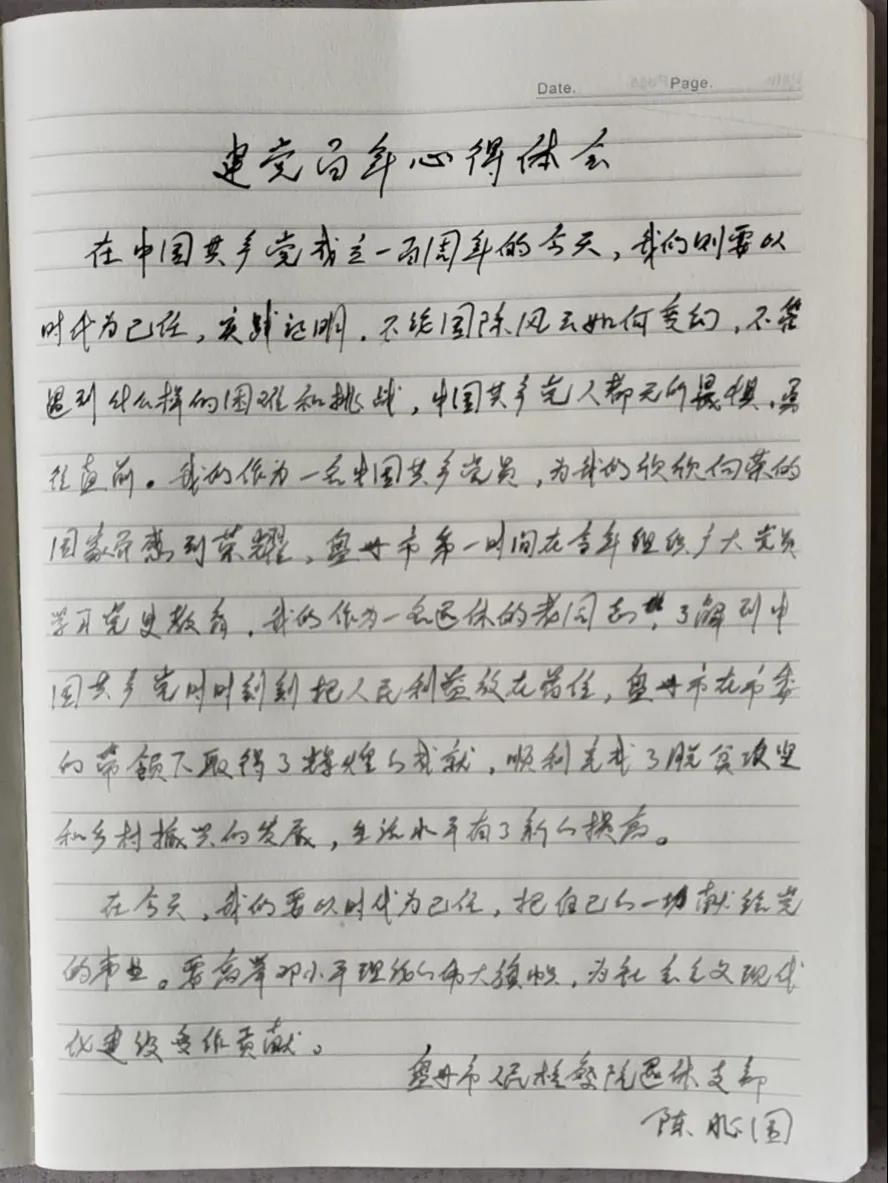 Date. Page.
建党百年心得体会
在中国共产党成立一百周年的今天，我们则要以
时代为己任，实践证明．不论国际风云如何变幻，不管
遇到什么样的困难和挑战，中国共产党人都无所畏惧，勇
往直前。我们作为一名中国共产党员，为我们欣欣向荣的
国家而感到荣耀，盘州市第一时间在青年组织广大党员
学习党史教育，我们作为一名退休的老同志，了解到中
国共产党时时刻刻把人民利益放在首位，盘州市在市委
的带领下取得了辉煌的成就，顺利完成了脱贫攻坚
和乡村振兴的发展，生活水平有了新的提高。
在今天，我们要以时代为己任，把自己的一切献给党
的事业。要高举邓小平理论的伟大旗帜，为社会主义现代
化建设多作贡献。
盘州市人民检察院退休支部
陈 国